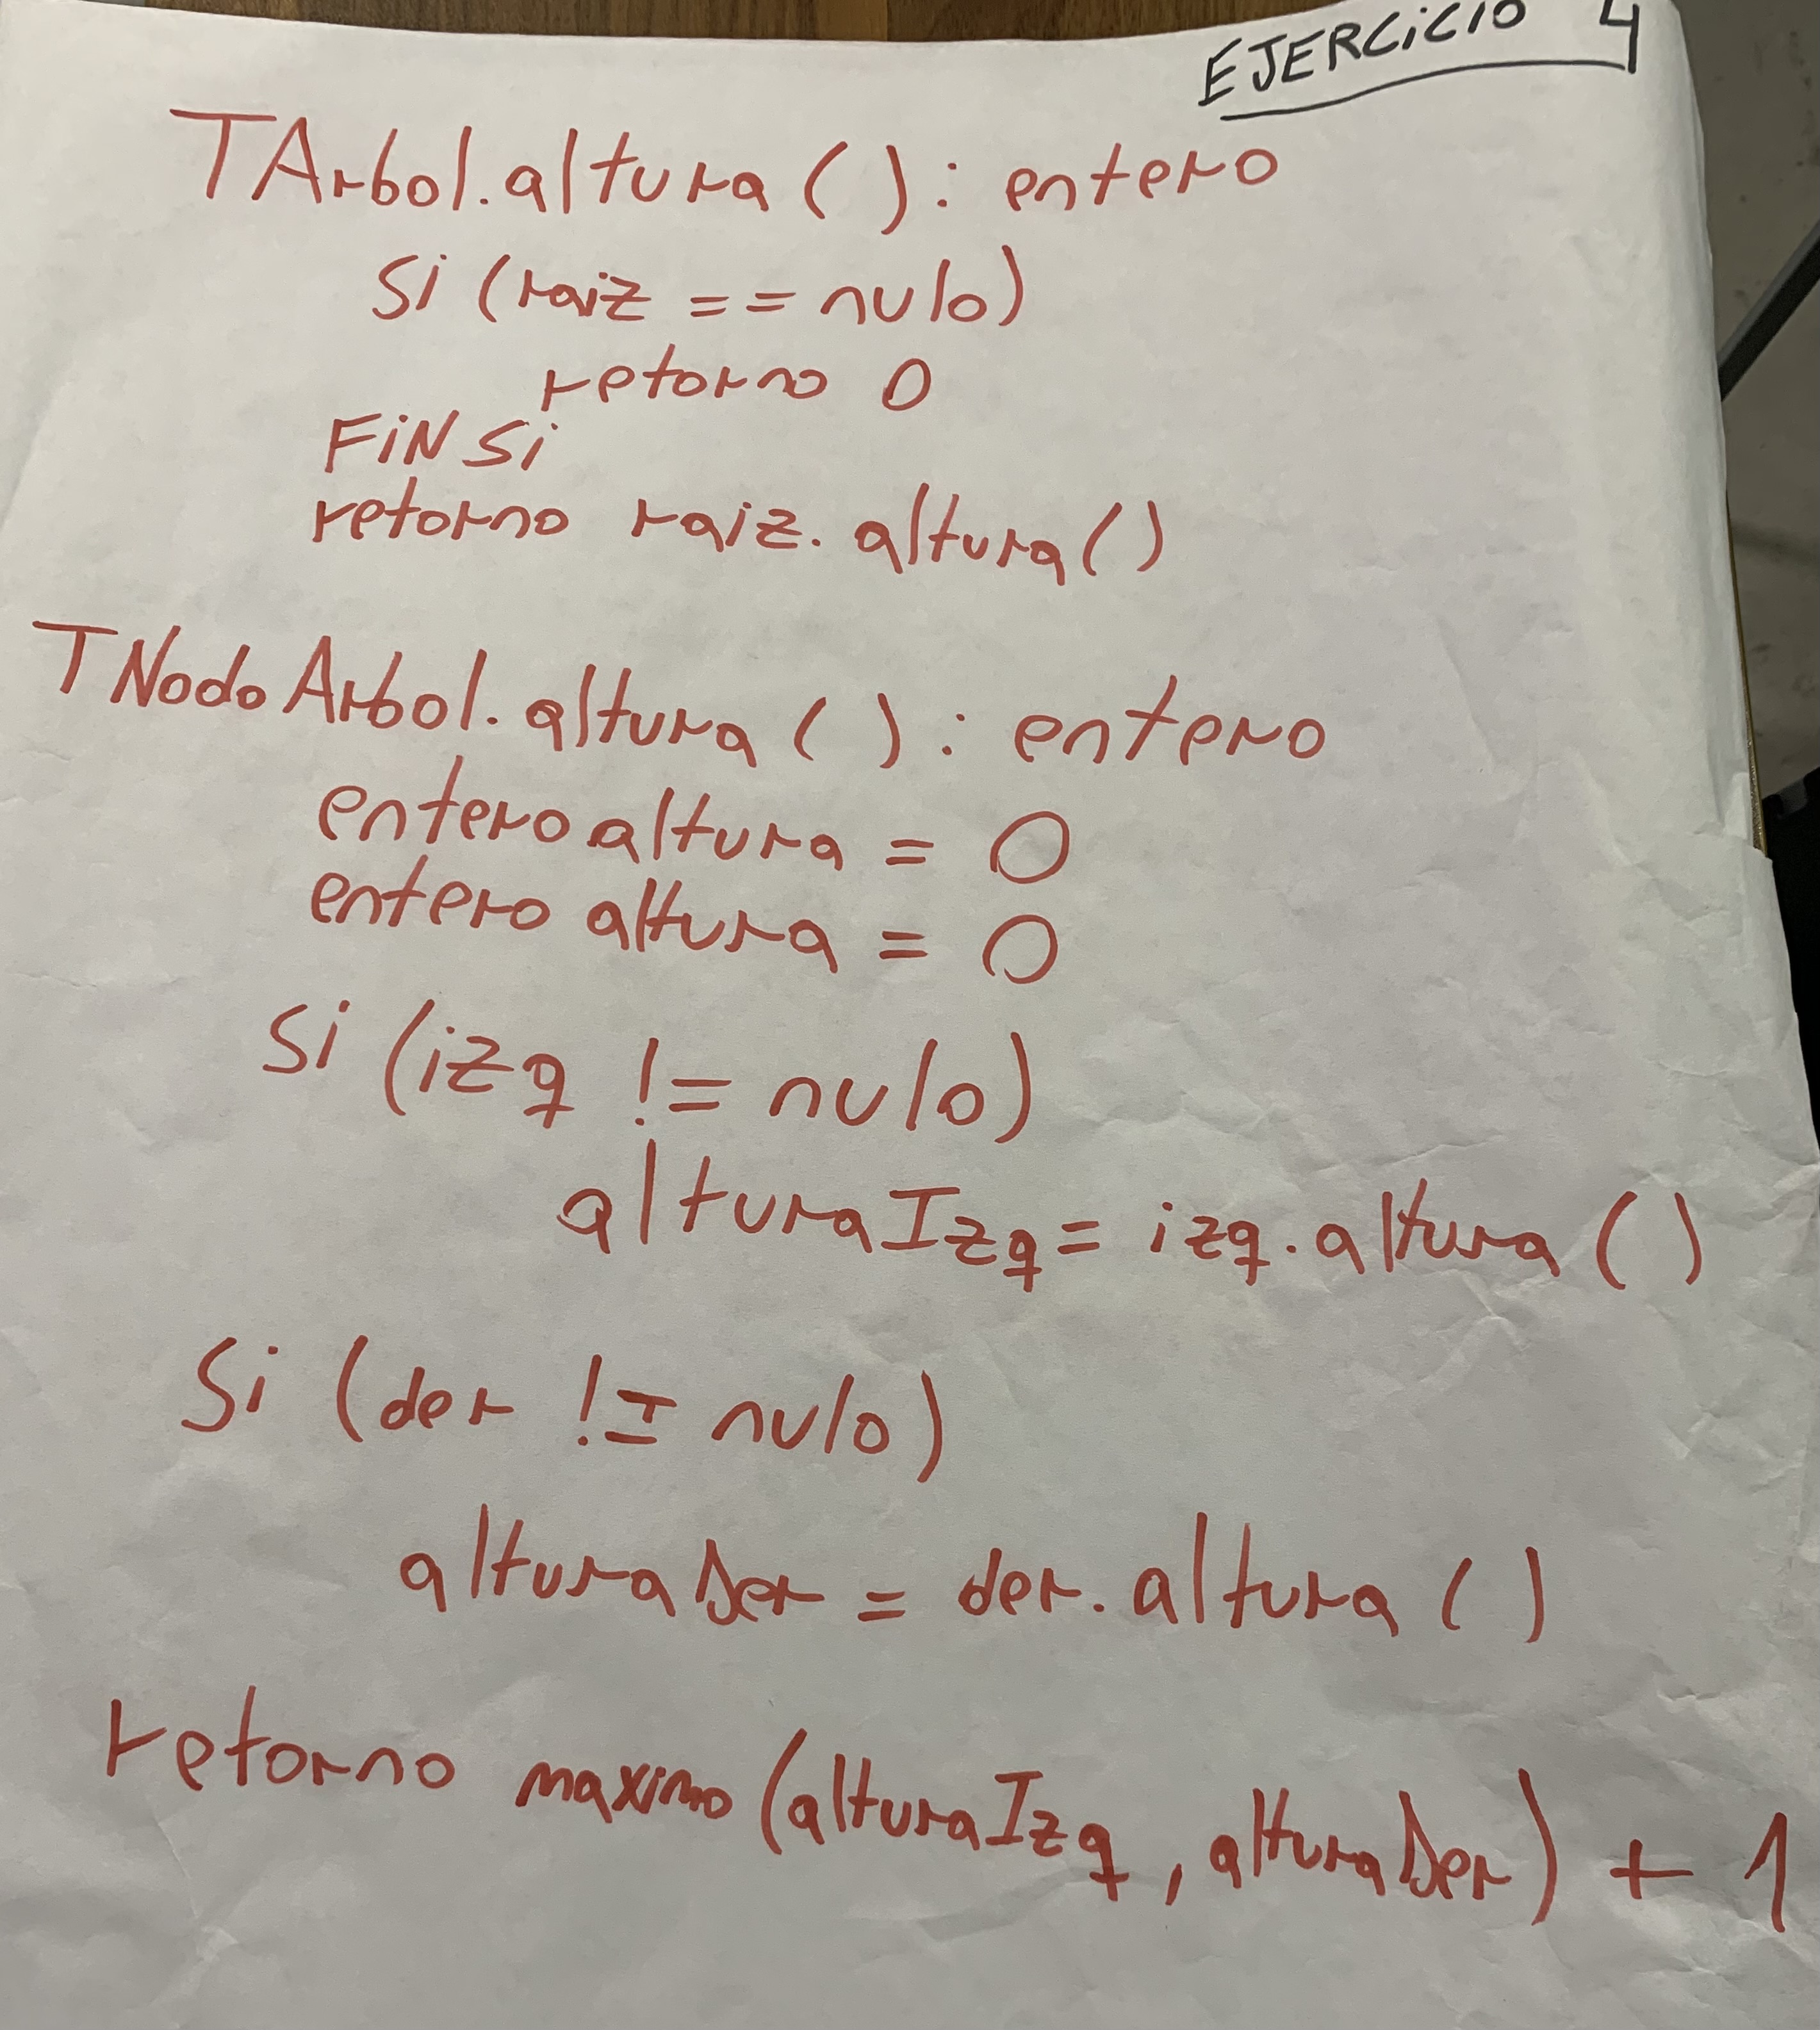 EJERCiCiO 4
TArbol.altura ( ) : entero
Si (raiz == nulo)
retorno 0
FiN Si
retorno raiz.altura()
TNodoArbol.altura ( ) : entero
entero altura = 0
entero altura = 0
Si (izq != nulo)
alturaIzq = izq.altura ( )
Si (der != nulo)
alturaDer = der.altura ( )
retorno maximo (alturaIzq, alturaDer) + 1